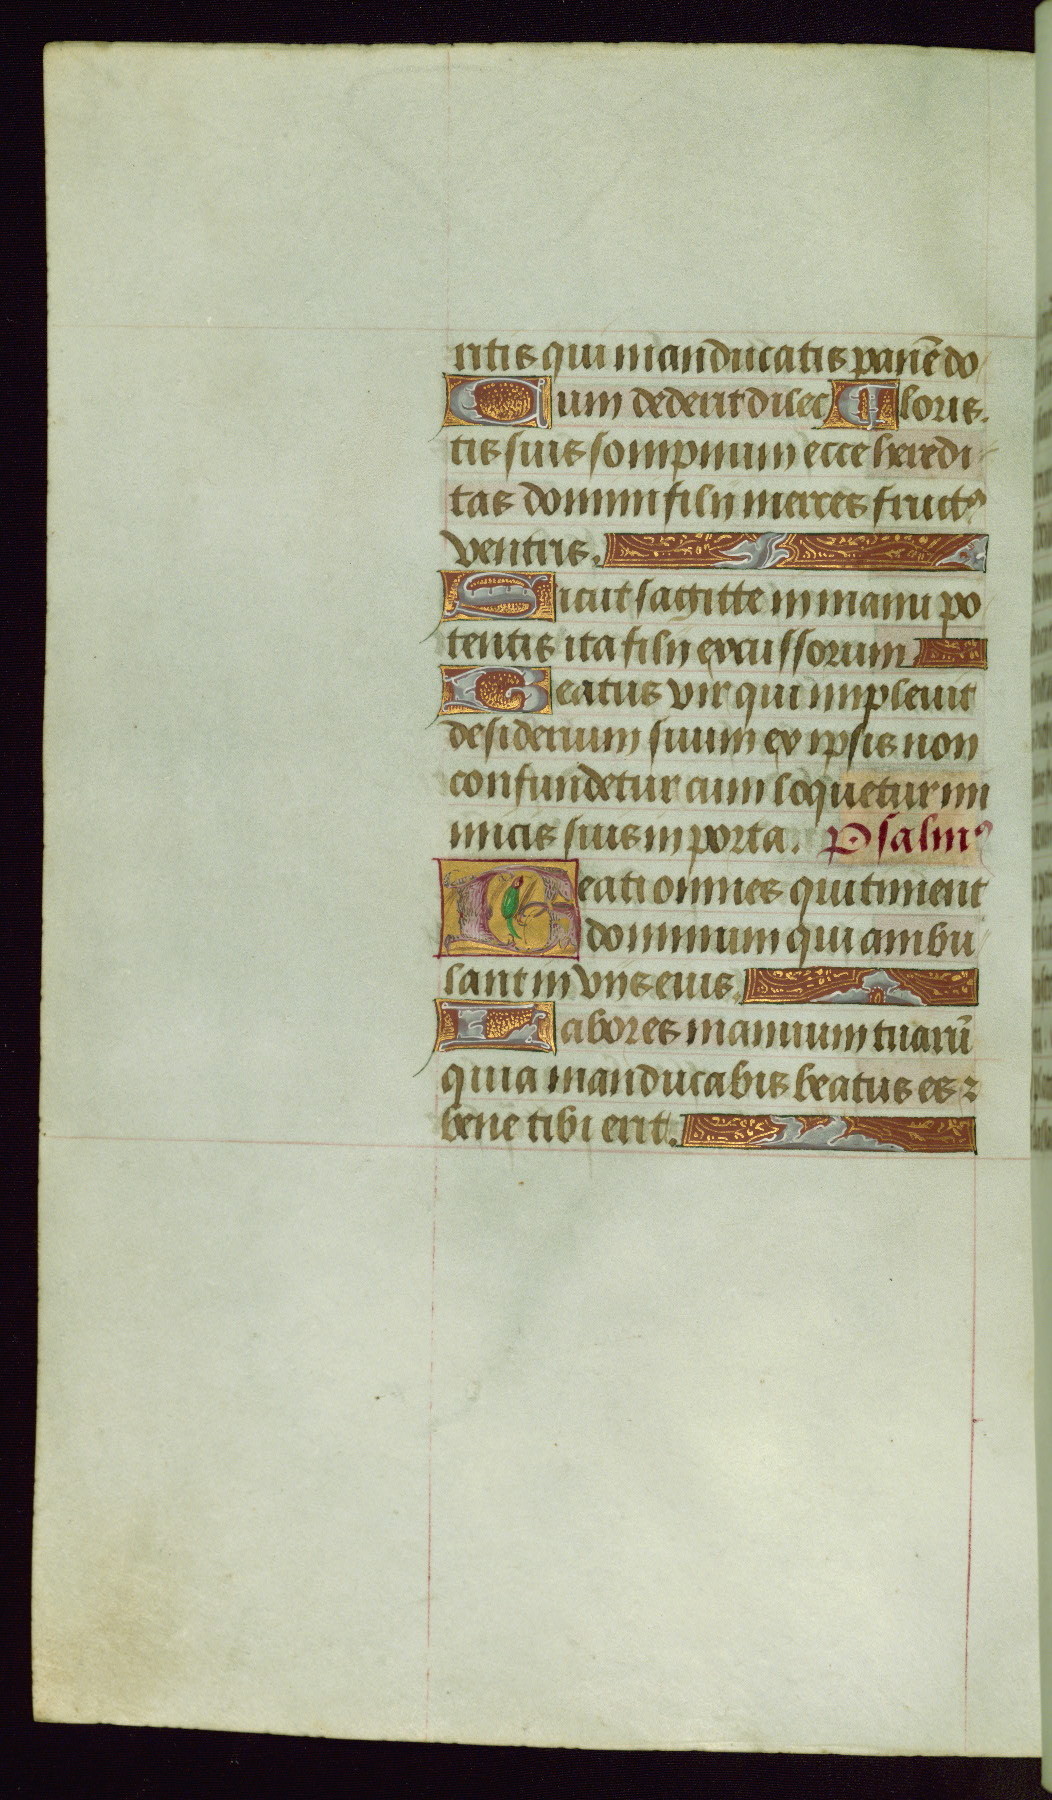 ritis qui manducatis panē do
Cum dederit dilec ¶ loris.
tis suis sompnum ecce heredi
tas domini filij merces fructꝰ
ventris.
Sicut sagitte in manu po
tentis ita filij excussorum
Beatus vir qui impleuit
desiderium suum ex ipsis non
confundetur cum loquetur ini
micis suis in porta. Psalmꝰ
Beati omnes qui timent
dominum qui ambu
lant in vijs eius.
Labores manuum tuarū
quia manducabis beatus es ⁊
bene tibi erit.